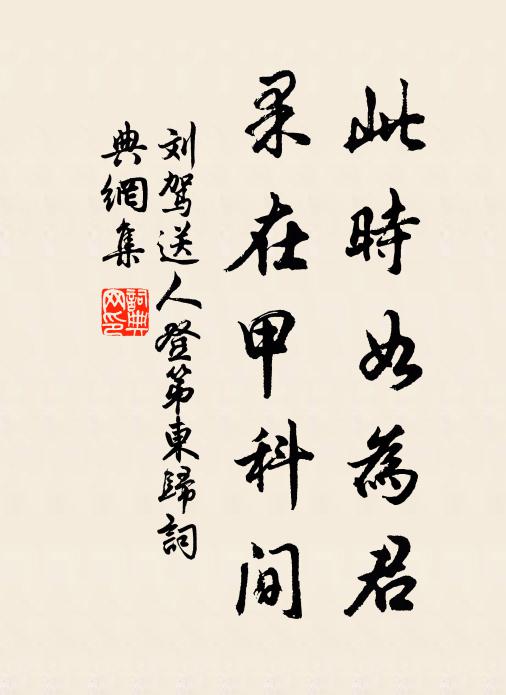 此時如為君
果在甲科間
刘驾送人登第東歸詞
典網集
詞典
网印